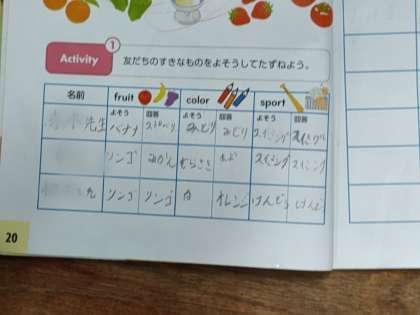 Activity 1 友だちのすきなものをよそうしてたずねよう。
名前 fruit color sport
よそう 回答 よそう 回答 よそう 回答
先生 バナナ みどり みどり スイミング スイミング
リンゴ みかん むらさき スイミング スイミング
リンゴ リンゴ 白 オレンジ けんどう けんどう
20